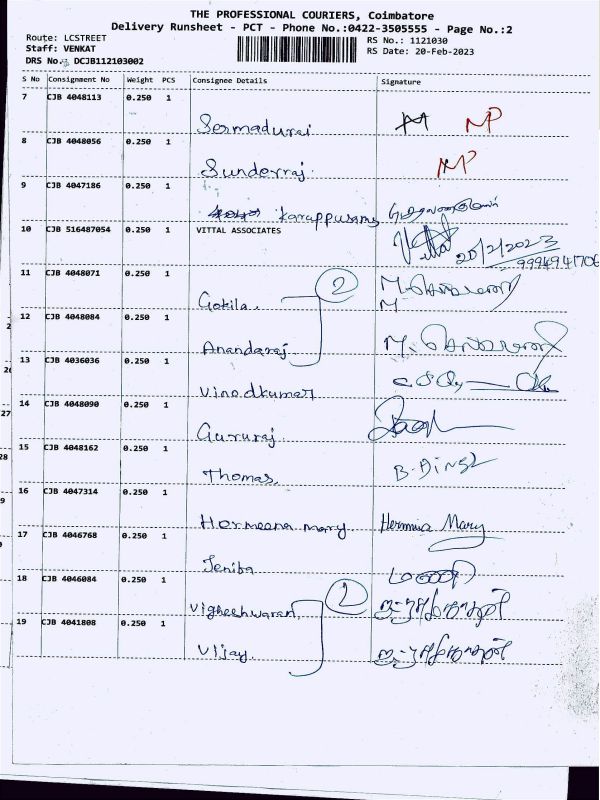 THE PROFESSIONAL COURIERS, Coimbatore
Delivery Runsheet - PCT - Phone No.:0422-3505555 - Page No.:2
Route: LCSTREET
RS No.: 1121030
Staff: VENKAT
RS Date: 20-Feb-2023
DRS No.: DCJB112103002
S No Consignment No Weight PCS Consignee Details Signature
7 CJB 4048113 0.250 1
Sermadurai M MP
8 CJB 4048056 0.250 1
Sunderraj. MP
9 CJB 4047186 0.250 1
Karuppusamy
10 CJB 516487054 0.250 1 VITTAL ASSOCIATES
Vittal 20/2/2023
9994941706
11 CJB 4048071 0.250 1
Gokila 2
M
12 CJB 4048084 0.250 1
Anandaraj
13 CJB 4036036 0.250 1
Vinodkumar
14 CJB 4048090 0.250 1
Gururaj
15 CJB 4048162 0.250 1
Thomas
16 CJB 4047314 0.250 1
Hermeana mary Hermina Mary
17 CJB 4046768 0.250 1
Jeniba
18 CJB 4046084 0.250 1
Vigheshwaran 2
19 CJB 4041808 0.250 1
Vijay.